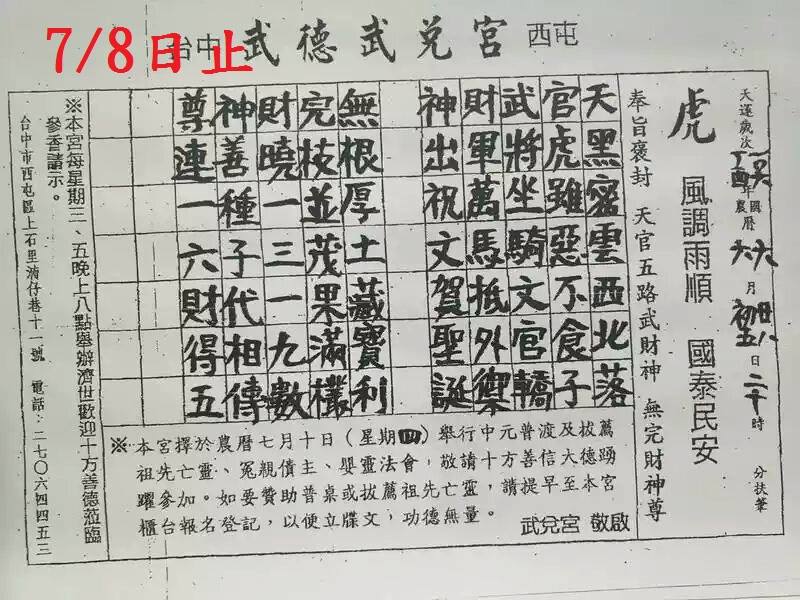 7/8日止
台中 武德武兌宮 西屯
天運歲次 年 國曆 六 月 廿八 日 二十 時 分扶筆
農曆 六 初五
虎 風調雨順 國泰民安
奉旨褒封 天官五路武財神 無完財神尊
天黑密雲西北落
官虎雖惡不食子
武將坐騎文官轎
財軍萬馬抵外禦
神出祝文賀聖誕
無根厚土藏寶利
完枝並茂果滿欉
財曉一三一九數
神善種子代相傳
尊連一六財得五
※本宮擇於農曆七月十日（星期四）舉行中元普渡及拔薦
祖先亡靈、冤親債主、嬰靈法會，敬請十方善信大德踴
躍參加。如要贊助普桌或拔薦祖先亡靈，請提早至本宮
櫃台報名登記，以便立牒文，功德無量。
武兌宮 敬啟
※本宮每星期三、五晚上八點舉辦濟世歡迎十方善德蒞臨
參香請示。
台中市西屯區上石里湳仔巷十一號 電話：二七０六四四五三